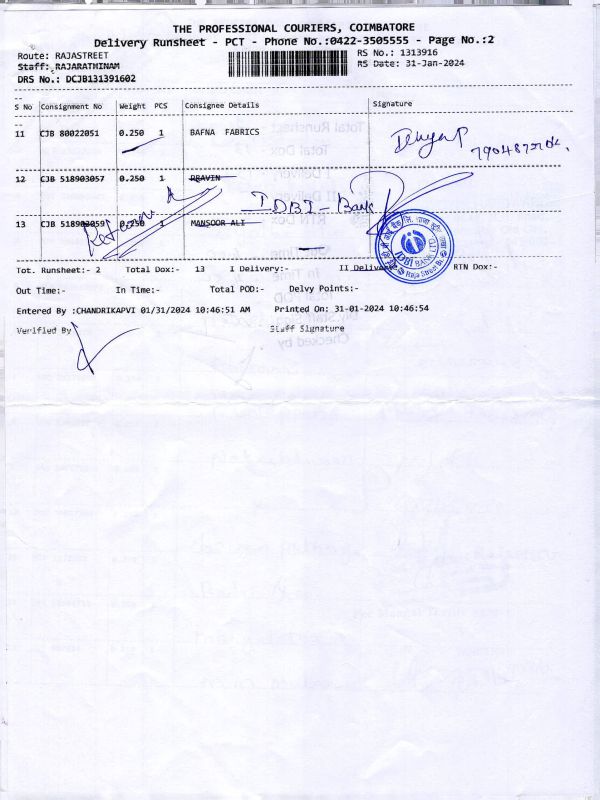 THE PROFESSIONAL COURIERS, COIMBATORE
Delivery Runsheet - PCT - Phone No.:0422-3505555 - Page No.:2
Route: RAJASTREET
RS No.: 1313916
Staff: RAJARATHINAM
RS Date: 31-Jan-2024
DRS No.: DCJB131391602
S No Consignment No Weight PCS Consignee Details Signature
11 CJB 80022051 0.250 1 BAFNA FABRICS
12 CJB 518903057 0.250 1 PRAVIN
IDBI - Bank
13 CJB 518903059 0.250 1 MANSOOR ALI
IDBI BANK LTD
Raja Street Br
Tot. Runsheet:- 2 Total Dox:- 13 I Delivery:- II Delivery:- RTN Dox:-
Out Time:- In Time:- Total POD:- Delvy Points:-
Entered By :CHANDRIKAPVI 01/31/2024 10:46:51 AM Printed On: 31-01-2024 10:46:54
Verified By Staff Signature